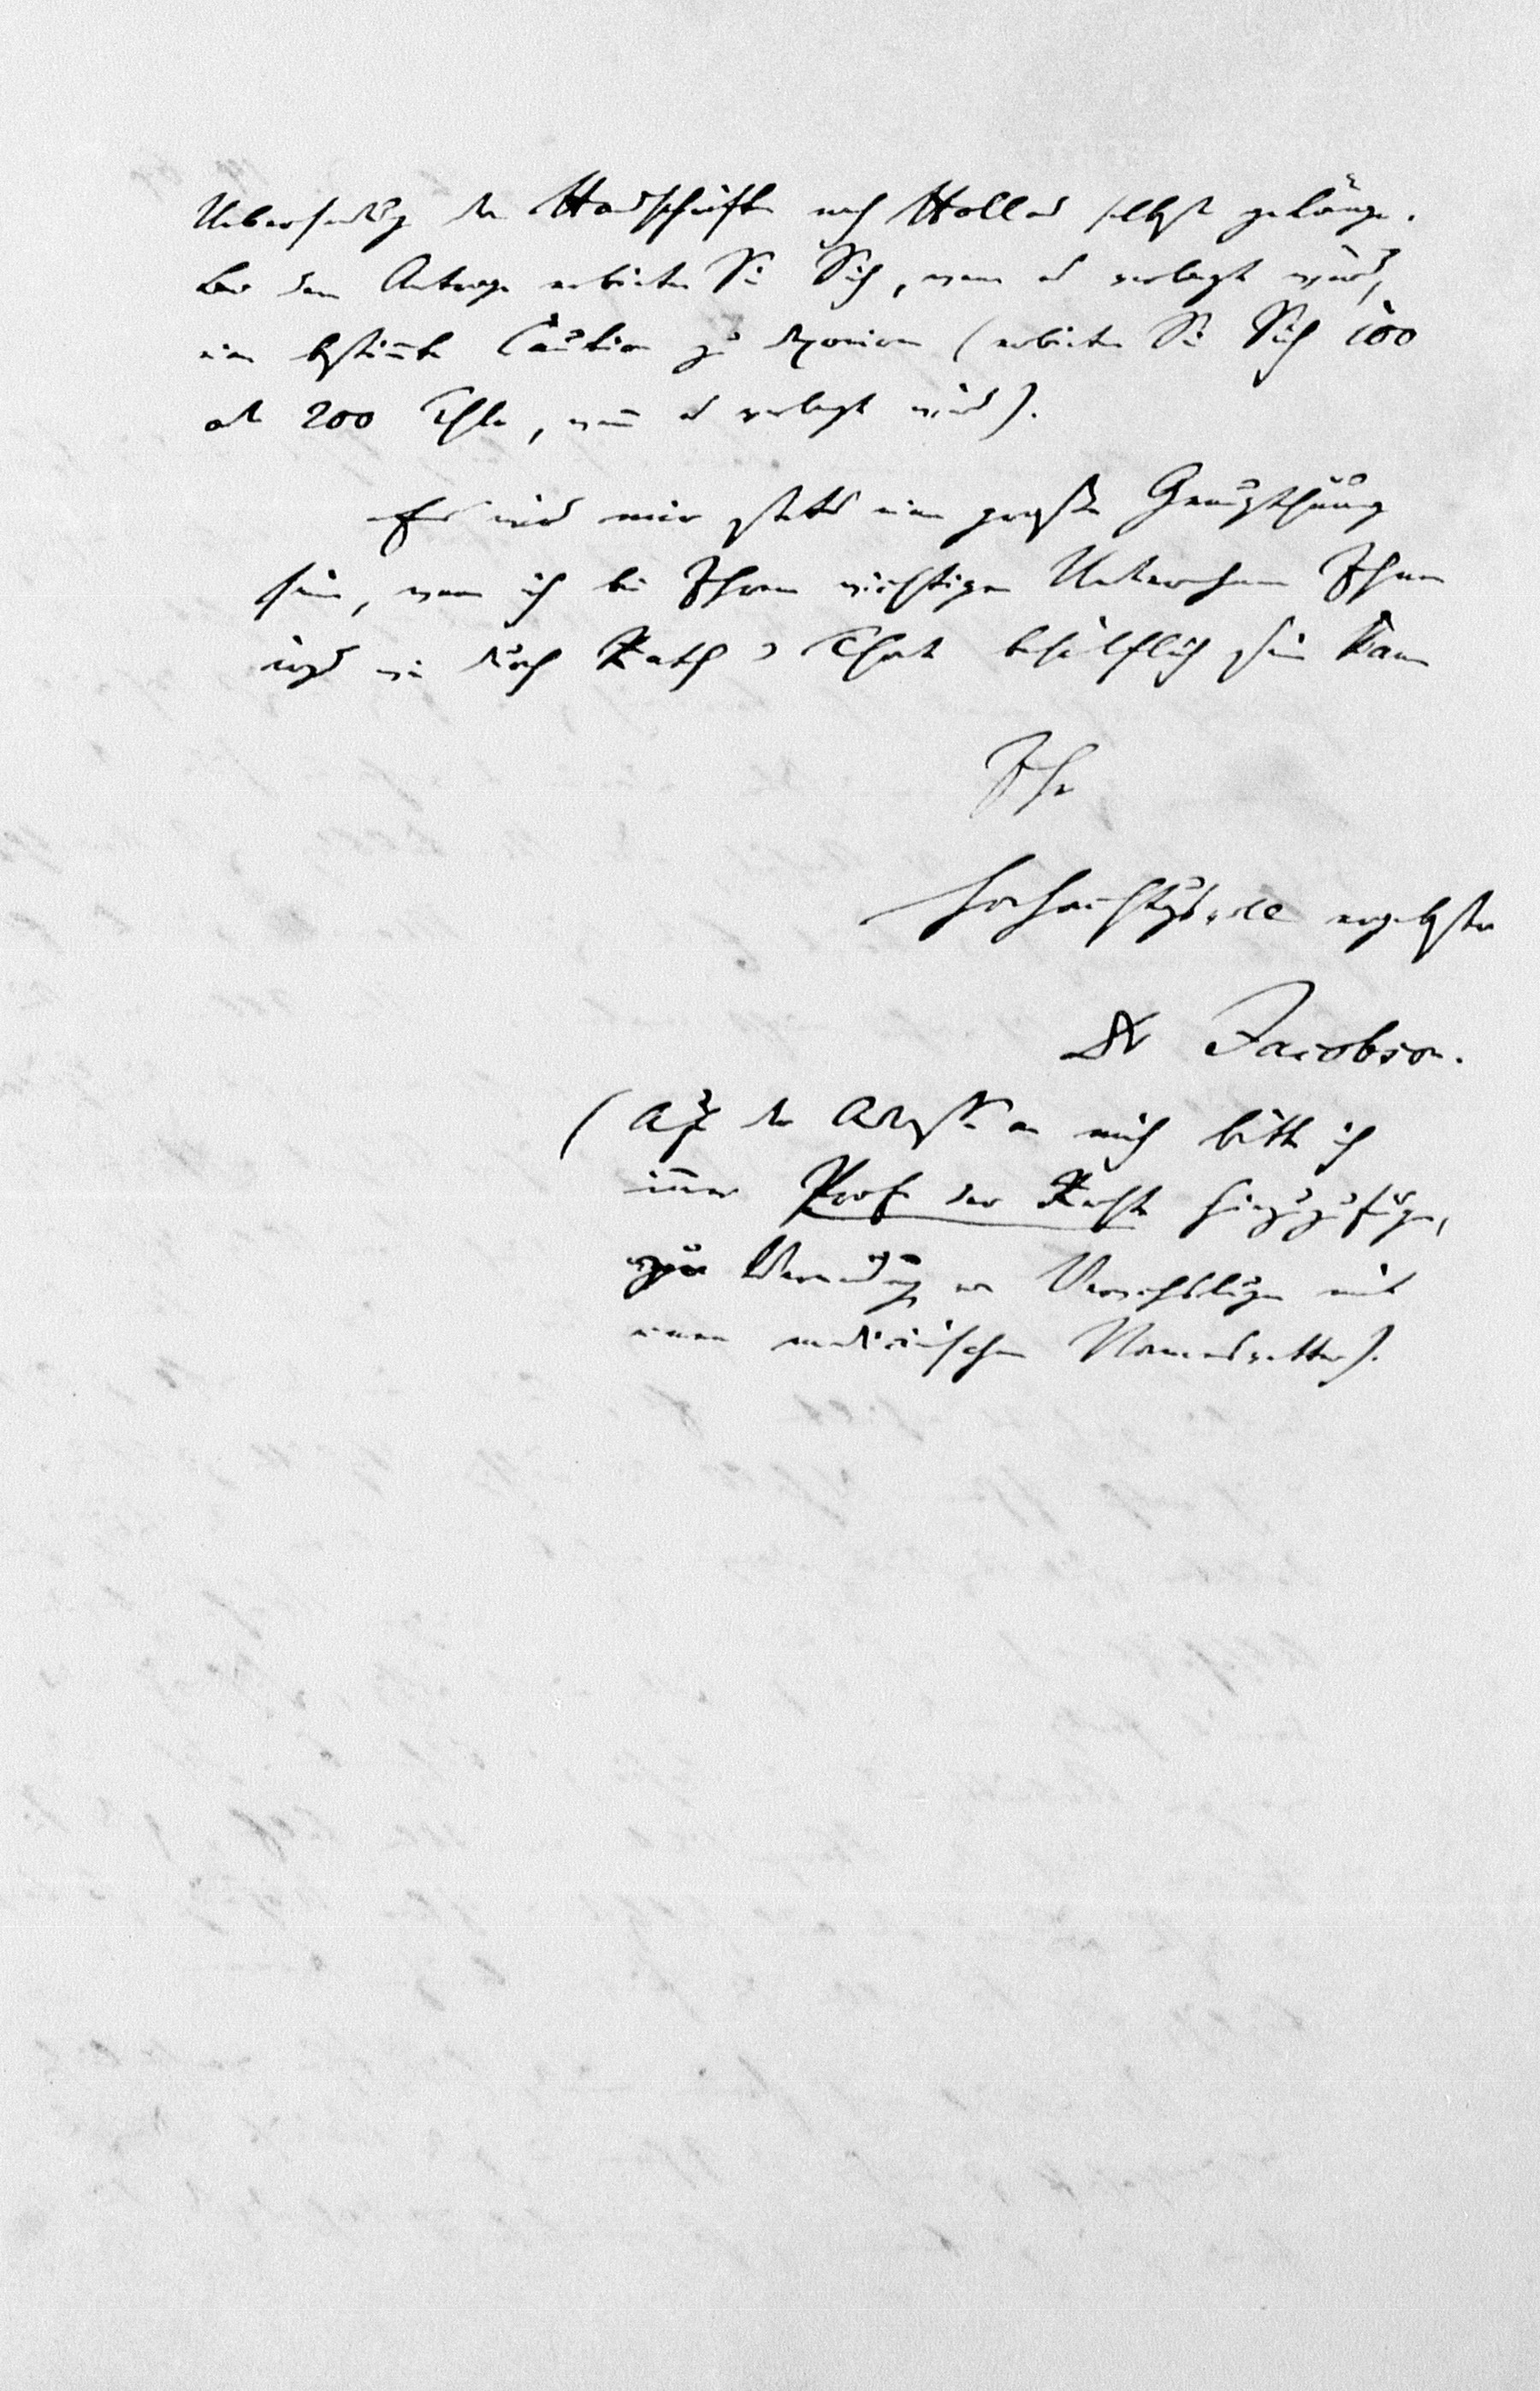 Uebersendung der Handschriften nach Holland selbst gelänge.
Bei dem Antrage erbieten Sie Sich, wenn es verlangt würde,
eine bestimmte Caution zu deponiren (erbieten Sie Sich 100
oder 200 Thlr, wenn es verlangt wird).
Es wird mir stets eine große Genugthuung
sein, wenn ich bei Ihrem wichtigen Unternehmen Ihnen
irgend wie durch Rath u That behülflich sein kann
Ihr
hochachtungsvoll ergebenster
Dr Jacobson.
(Auf der Adresse an mich bitte ich
immer Prof. der Rechte hinzuzufügen,
zur Vermeidung von Verwechslungen mit
einem medicinischen Namensvetter).